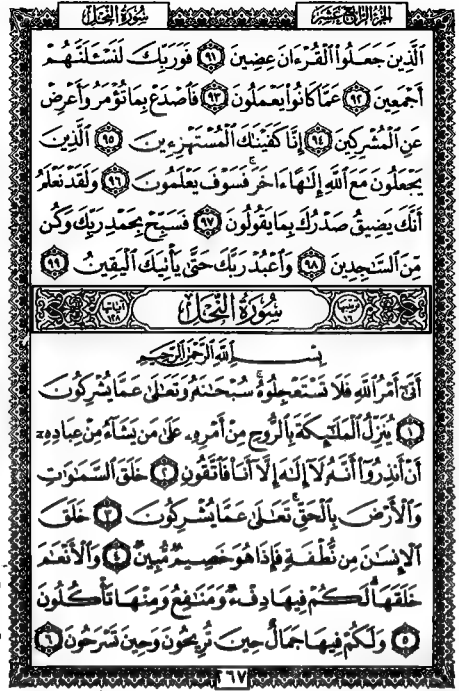 سُورَةُ النَّحْلِ الجُزْءُ الرَّابِعَ عَشَرَ
ٱلَّذِينَ جَعَلُوا۟ ٱلْقُرْءَانَ عِضِينَ ٩١ فَوَرَبِّكَ لَنَسْـَٔلَنَّهُمْ
أَجْمَعِينَ ٩٢ عَمَّا كَانُوا۟ يَعْمَلُونَ ٩٣ فَٱصْدَعْ بِمَا تُؤْمَرُ وَأَعْرِضْ
عَنِ ٱلْمُشْرِكِينَ ٩٤ إِنَّا كَفَيْنَٰكَ ٱلْمُسْتَهْزِءِينَ ٩٥ ٱلَّذِينَ
يَجْعَلُونَ مَعَ ٱللَّهِ إِلَٰهًا ءَاخَرَ ۚ فَسَوْفَ يَعْلَمُونَ ٩٦ وَلَقَدْ نَعْلَمُ
أَنَّكَ يَضِيقُ صَدْرُكَ بِمَا يَقُولُونَ ٩٧ فَسَبِّحْ بِحَمْدِ رَبِّكَ وَكُن
مِّنَ ٱلسَّٰجِدِينَ ٩٨ وَٱعْبُدْ رَبَّكَ حَتَّىٰ يَأْتِيَكَ ٱلْيَقِينُ ٩٩
ترتيبها ١٦ سُورَةُ النَّحْلِ آياتها ١٢٨
بِسْمِ ٱللَّهِ ٱلرَّحْمَٰنِ ٱلرَّحِيمِ
أَتَىٰٓ أَمْرُ ٱللَّهِ فَلَا تَسْتَعْجِلُوهُ ۚ سُبْحَٰنَهُۥ وَتَعَٰلَىٰ عَمَّا يُشْرِكُونَ
١ يُنَزِّلُ ٱلْمَلَٰٓئِكَةَ بِٱلرُّوحِ مِنْ أَمْرِهِۦ عَلَىٰ مَن يَشَآءُ مِنْ عِبَادِهِۦٓ
أَنْ أَنذِرُوٓا۟ أَنَّهُۥ لَآ إِلَٰهَ إِلَّآ أَنَا۠ فَٱتَّقُونِ ٢ خَلَقَ ٱلسَّمَٰوَٰتِ
وَٱلْأَرْضَ بِٱلْحَقِّ ۚ تَعَٰلَىٰ عَمَّا يُشْرِكُونَ ٣ خَلَقَ
ٱلْإِنسَٰنَ مِن نُّطْفَةٍ فَإِذَا هُوَ خَصِيمٌ مُّبِينٌ ٤ وَٱلْأَنْعَٰمَ
خَلَقَهَا ۗ لَكُمْ فِيهَا دِفْءٌ وَمَنَٰفِعُ وَمِنْهَا تَأْكُلُونَ
٥ وَلَكُمْ فِيهَا جَمَالٌ حِينَ تُرِيحُونَ وَحِينَ تَسْرَحُونَ ٦
٢٦٧